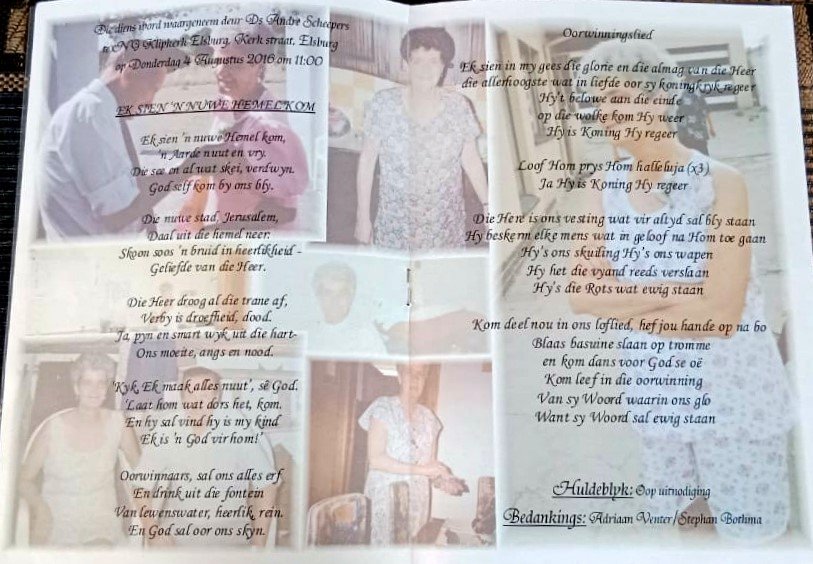 Die diens word waargeneem deur Ds Andre Scheepers
te NG Klipkerk Elsburg, Kerk straat, Elsburg
op Donderdag 4 Augustus 2016 om 11:00
EK SIEN 'N NUWE HEMEL KOM
Ek sien 'n nuwe Hemel kom,
'n Aarde nuut en vry.
Die see en al wat skei, verdwyn.
God self kom by ons bly.
Die nuwe stad, Jerusalem,
Daal uit die hemel neer:
Skoon soos 'n bruid in heerlikheid -
Geliefde van die Heer.
Die Heer droog al die trane af,
Verby is droefheid, dood.
Ja, pyn en smart wyk uit die hart-
Ons moeite, angs en nood.
'Kyk, Ek maak alles nuut', sê God.
'Laat hom wat dors het, kom.
En hy sal vind hy is my kind
Ek is 'n God vir hom!'
Oorwinnaars, sal ons alles erf
En drink uit die fontein
Van lewenswater, heerlik, rein.
En God sal oor ons skyn.
Oorwinningslied
Ek sien in my gees die glorie en die almag van die Heer
die allerhoogste wat in liefde oor sy koningkryk regeer
Hy't belowe aan die einde
op die wolke kom Hy weer
Hy is Koning Hy regeer
Loof Hom prys Hom halleluja (x3)
Ja Hy is Koning Hy regeer
Die Here is ons vesting wat vir altyd sal bly staan
Hy beskerm elke mens wat in geloof na Hom toe gaan
Hy's ons skuiling Hy's ons wapen
Hy het die vyand reeds verslaan
Hy's die Rots wat ewig staan
Kom deel nou in ons loflied, hef jou hande op na bo
Blaas basuine slaan op tromme
en kom dans voor God se oë
Kom leef in die oorwinning
Van sy Woord waarin ons glo
Want sy Woord sal ewig staan
Huldeblyk: Oop uitnodiging
Bedankings: Adriaan Venter/Stephan Bothma